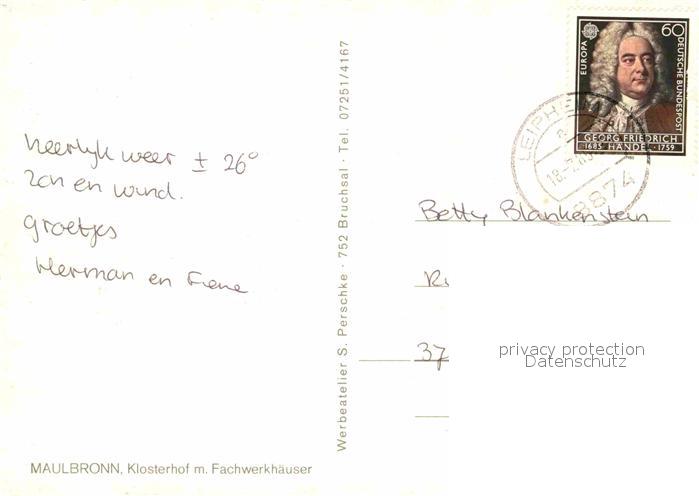 heerlijk weer ± 26°
zon en wind.
groetjes
Herman en Fiene
MAULBRONN, Klosterhof m. Fachwerkhäuser
Werbeatelier S. Perschke · 752 Bruchsal · Tel. 07251/4167
EUROPA
60
DEUTSCHE BUNDESPOST
GEORG FRIEDRICH
1685 HÄNDEL 1759
LEIPHEIM
8874
Betty Blankenstein
R
37
privacy protection
Datenschutz